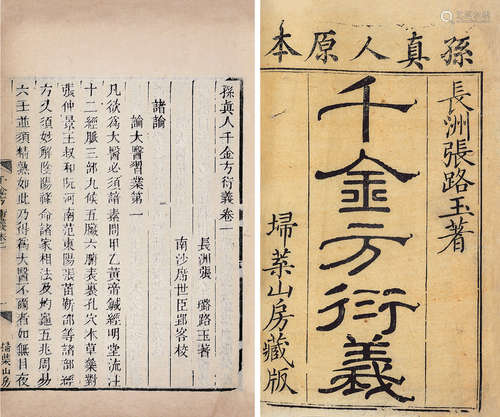 孫真人原本
長洲張路玉著
千金方衍義
埽葉山房藏版
孫真人千金方衍義卷一
長洲張 璐路玉著
南沙席世臣郢客校
諸論
論大醫習業第一
凡欲為大醫必須諳素問甲乙黃帝鍼經明堂流注
十二經脈三部九候五臟六腑表裏孔穴本草藥對
張仲景王叔和阮河南范東陽張苗靳邵等諸部經
方又須妙解陰陽祿命諸家相法及灼龜五兆周易
六壬並須精熟如此乃得為大醫不爾者如無目夜
埽葉山房